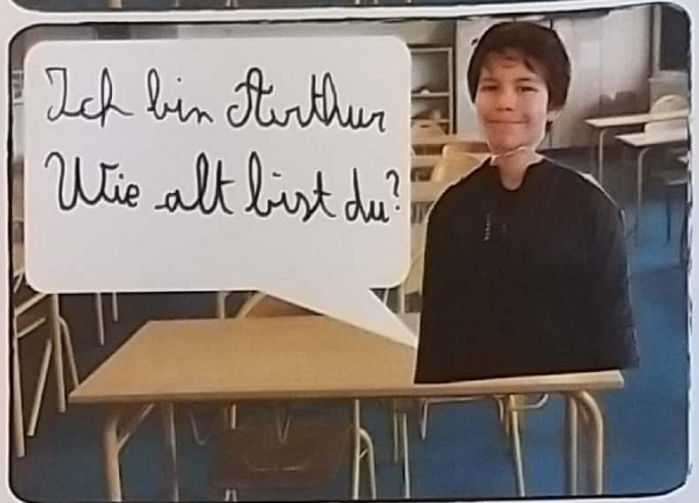 Ich bin Arthur
Wie alt bist du?